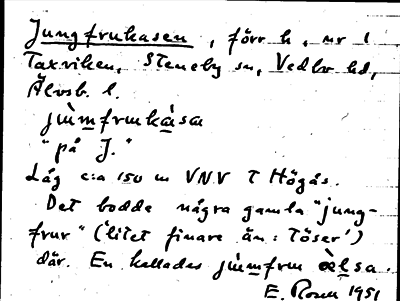 Jungfrukasen, förr h. nr 1
Taxviken, Steneby sn, Vedbo hd,
Älvsb. l.
jùmfrukàsa
"på J."
Låg c:a 150 m VNV T Högås.
Det bodde några gamla "jung-
frur" ('litet finare än: töser')
där. En kallades jùmfru æ̀lsa.
E. Rosen 1951